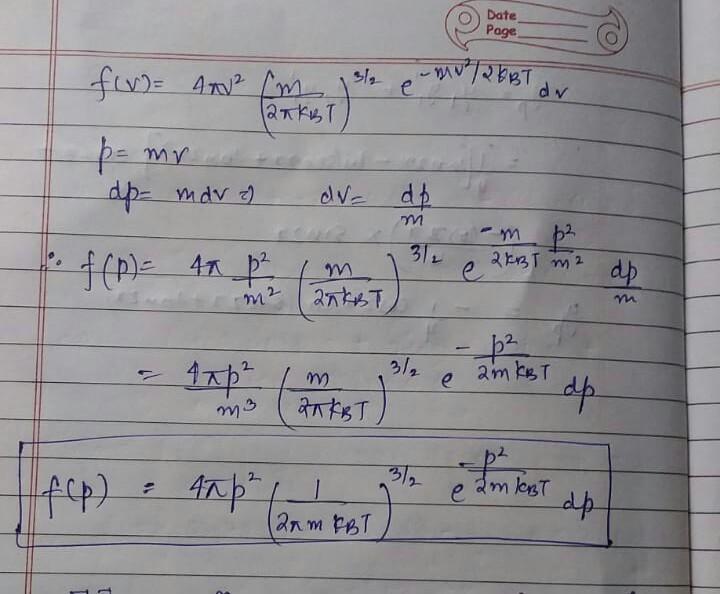 Date
Page
f(v) = 4πv² (m/2πk_BT)^3/2 e^-mv²/2k_BT dv
p = mv
dp = mdv ⇒ dv = dp/m
∴ f(p) = 4π p²/m² (m/2πk_BT)^3/2 e^-m/2k_BT p²/m² dp/m
= 4πp²/m³ (m/2πk_BT)^3/2 e^-p²/2mk_BT dp
f(p) = 4πp² (1/2πmk_BT)^3/2 e^-p²/2mk_BT dp